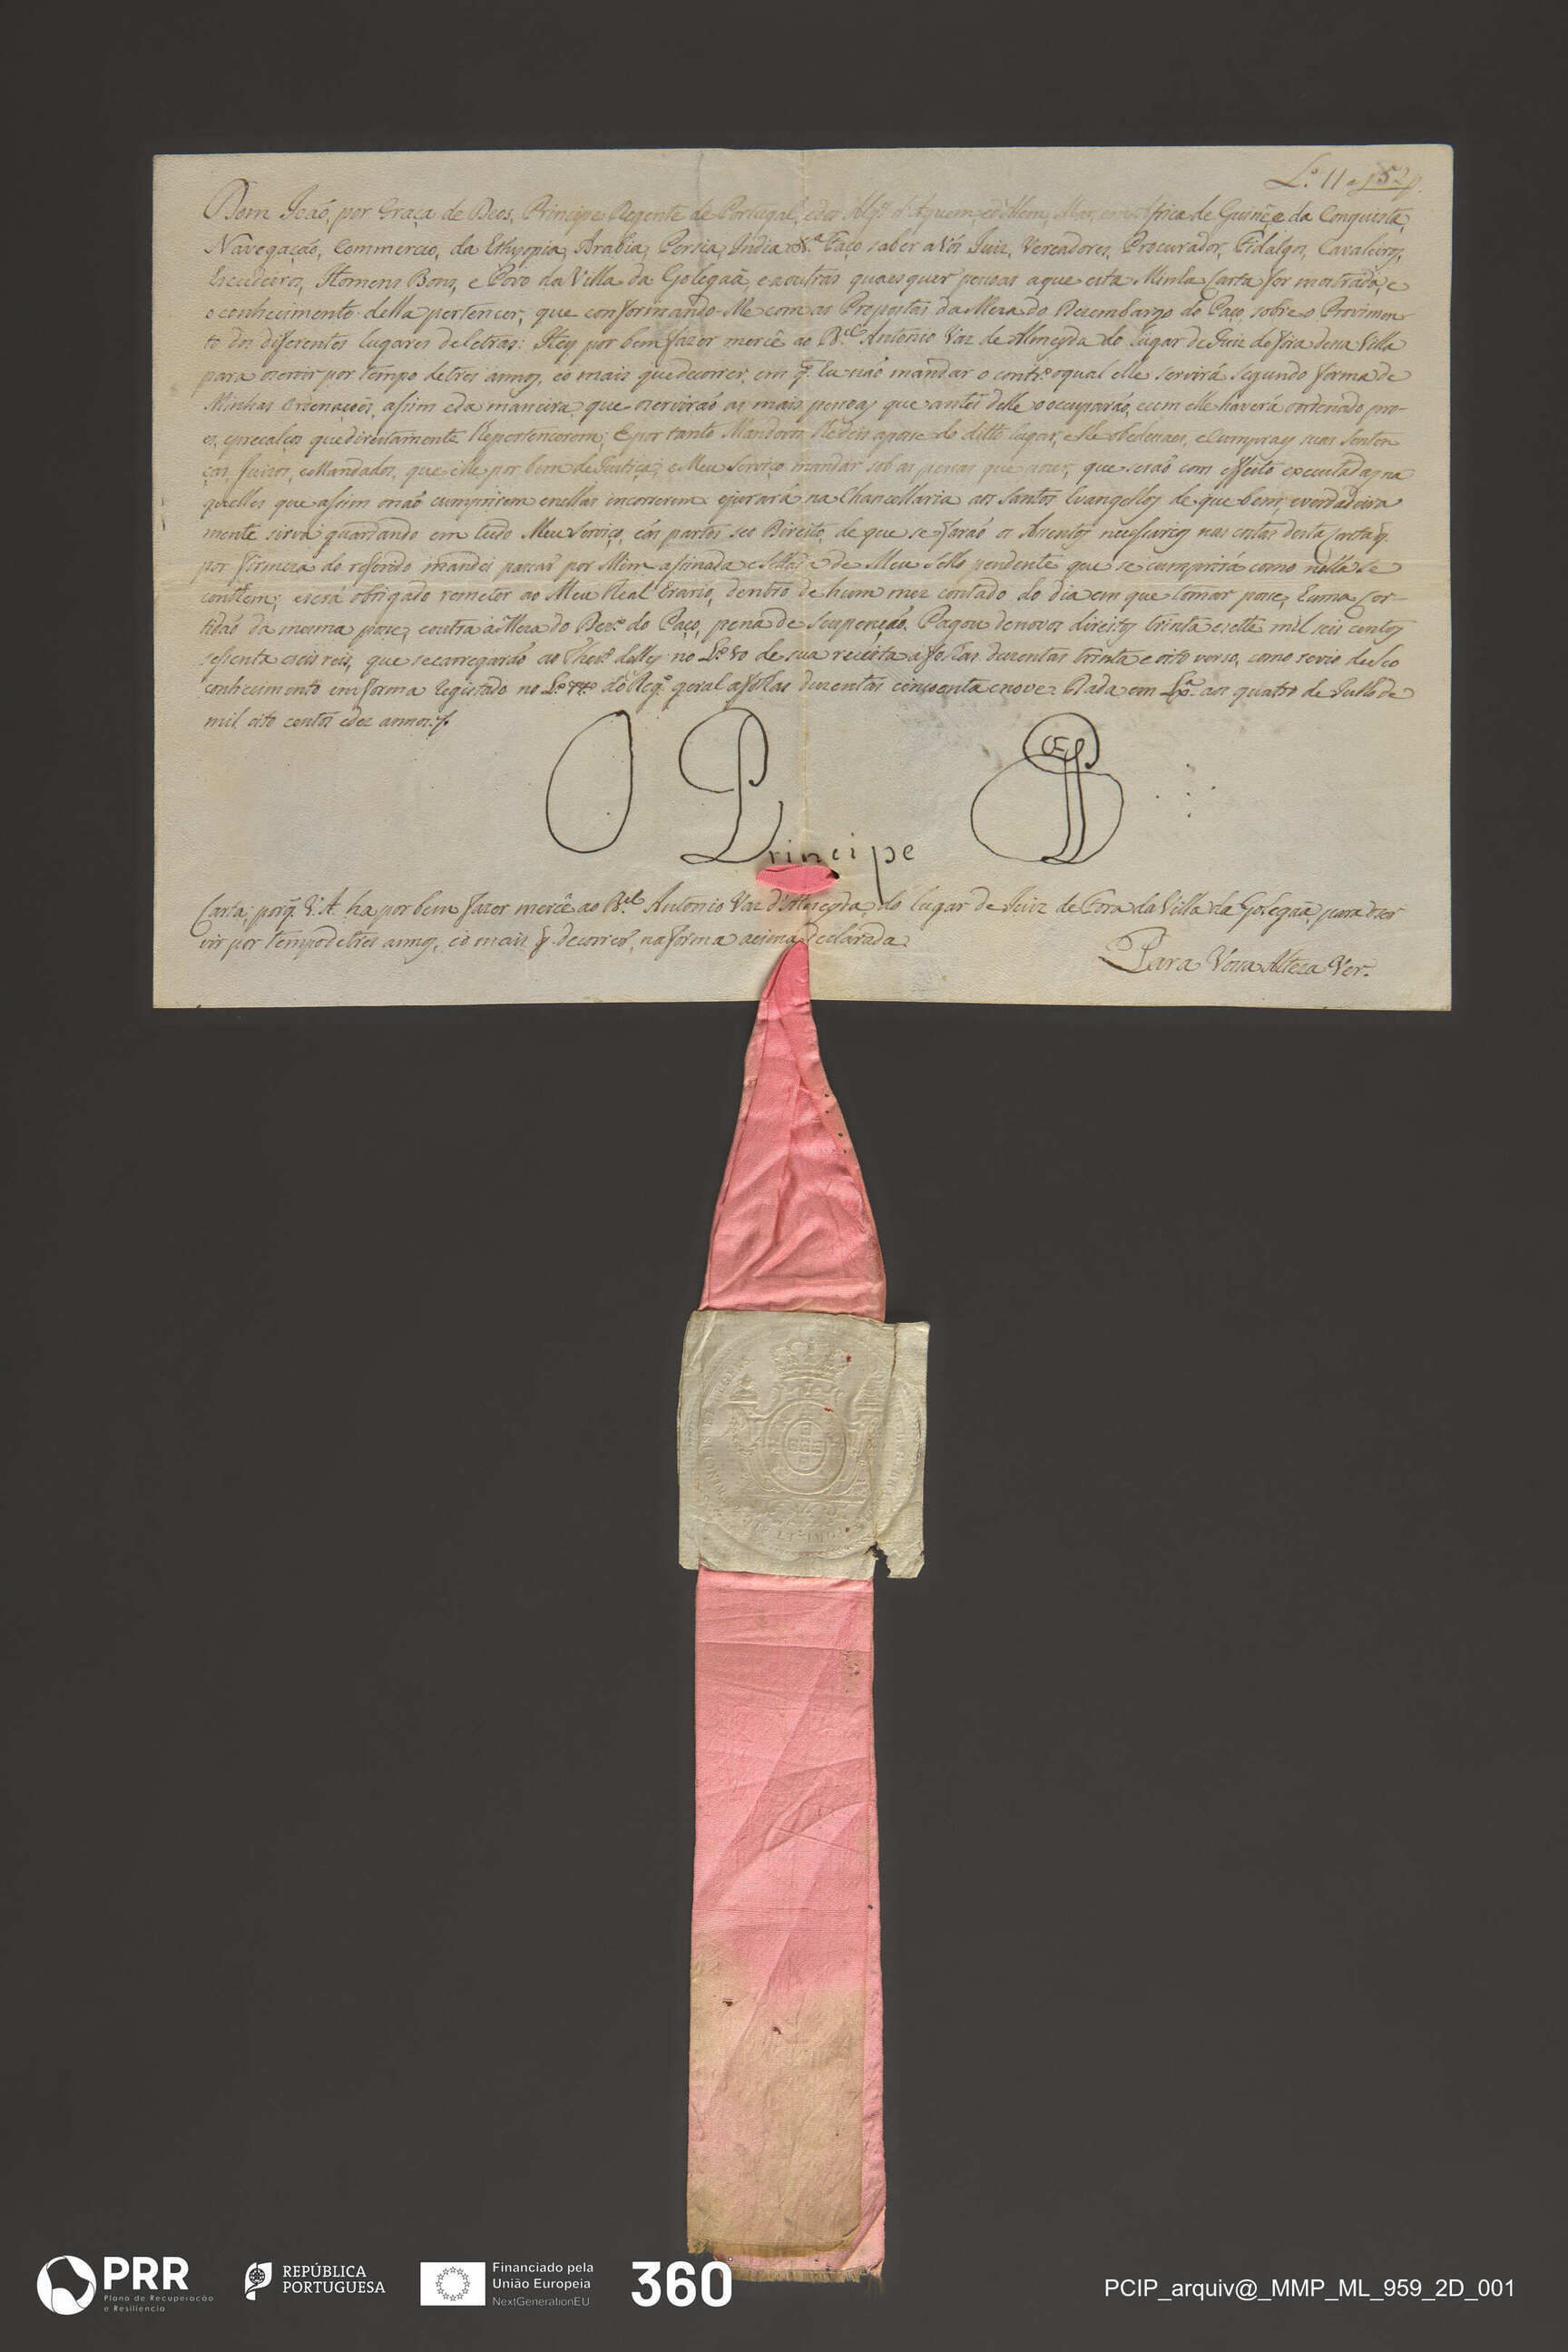 L.º 11 a f 52
Dom Joaõ, por Graça de Deos, Principe Regente de Portugal, edos Alg.es d'Aquem, ed'Alem, Mar, em Africa de Guiné, e da Conquista,
Navegaçaõ, Commercio, da Ethyopia, Arabia, Persia, India &.ª Faço saber a Vós Juiz, Vereadores, Procurador, Fidalgos, Cavaleiros,
Escudeiros, Homens Bons, e Povo da Villa da Golegaã, eaoutras quaesquer pessoas aque esta Minha Carta for mostrada, e
o conhecimento della pertencer, que conformando-Me com as Propostas da Meza do Dezembargo do Paço, sobre o Provimen-
to dos diferentes lugares de letras: Hey por bem fazer mercê ao B.el Antonio Vaz de Almeyda do lugar de Juiz de fóra dessa Villa
para oservir por tempo detres annos, eo mais que decorrer, em q.' Eu naõ mandar o contr.º oqual elle servirá segundo forma de
Minhas Ordenaçoẽs, assim eda maneira, que oserviraõ as mais pessoas que antes delle o occuparaõ, ecom elle haverá oordenado pro-
es, eprecalços que direitamente lhe pertencerem; E por tanto Mandovos lhe deis aposse do ditto lugar, elhe obedeçaes, eCumpraes suas Senten
ças, Juizos, eMandados, que elle por bem de Justiça, e Meu Serviço mandar sob as penas que pozer, que seraõ com effeito executadas na
quelles que assim onaõ cumprirem enellas incorrerem: ejurará na Chancellaria aos Santos Evangelhos de que bem, everdadeira
mente sirva guardando em tudo Meu Serviço, eás partes seo Direito, de que se faraõ os Assentos necessarios nas costas desta Carta q.
por firmeza do referido mandei passar por Mim assinada eSellada de Meu Sello pendente que se cumprirá como nella se
contem; eserá obrigado remeter ao Meu Real Erario, dentro de hum mez contado do dia em que tomar posse, huma Cer-
tidaõ da mesma posse, e outra á Meza do Dez.º do Paço, pena de Suspençaõ. Pagou denovos direitos trinta esette mil seis centos
sessenta eseis reis, que secarregaraõ ao Thez.º delles no L.º 50 de sua receita afolhas duzentas trinta e oito verso, como sevio deseo
conhecimento em forma registado no L.º 74º do Reg.º geral afolhas duzentas cincoenta enove: Dada em Lx.ª aos quatro de Julho de
mil oito centos edez annos.
O Principe
Carta, porq.' V. A. ha por bem fazer mercê ao B.el Antonio Vaz d'Almeyda, do lugar de Juiz de Fora da Villa da Golegaã, para oser
vir por tempo detres annos, eo mais q.' decorrer, na forma acima declarada.
Para Vossa Alteza Ver.
PRR
Plano de Recuperação
e Resiliência
REPÚBLICA
PORTUGUESA
Financiado pela
União Europeia
NextGenerationEU
360
PCIP_arquiv@_MMP_ML_959_2D_001